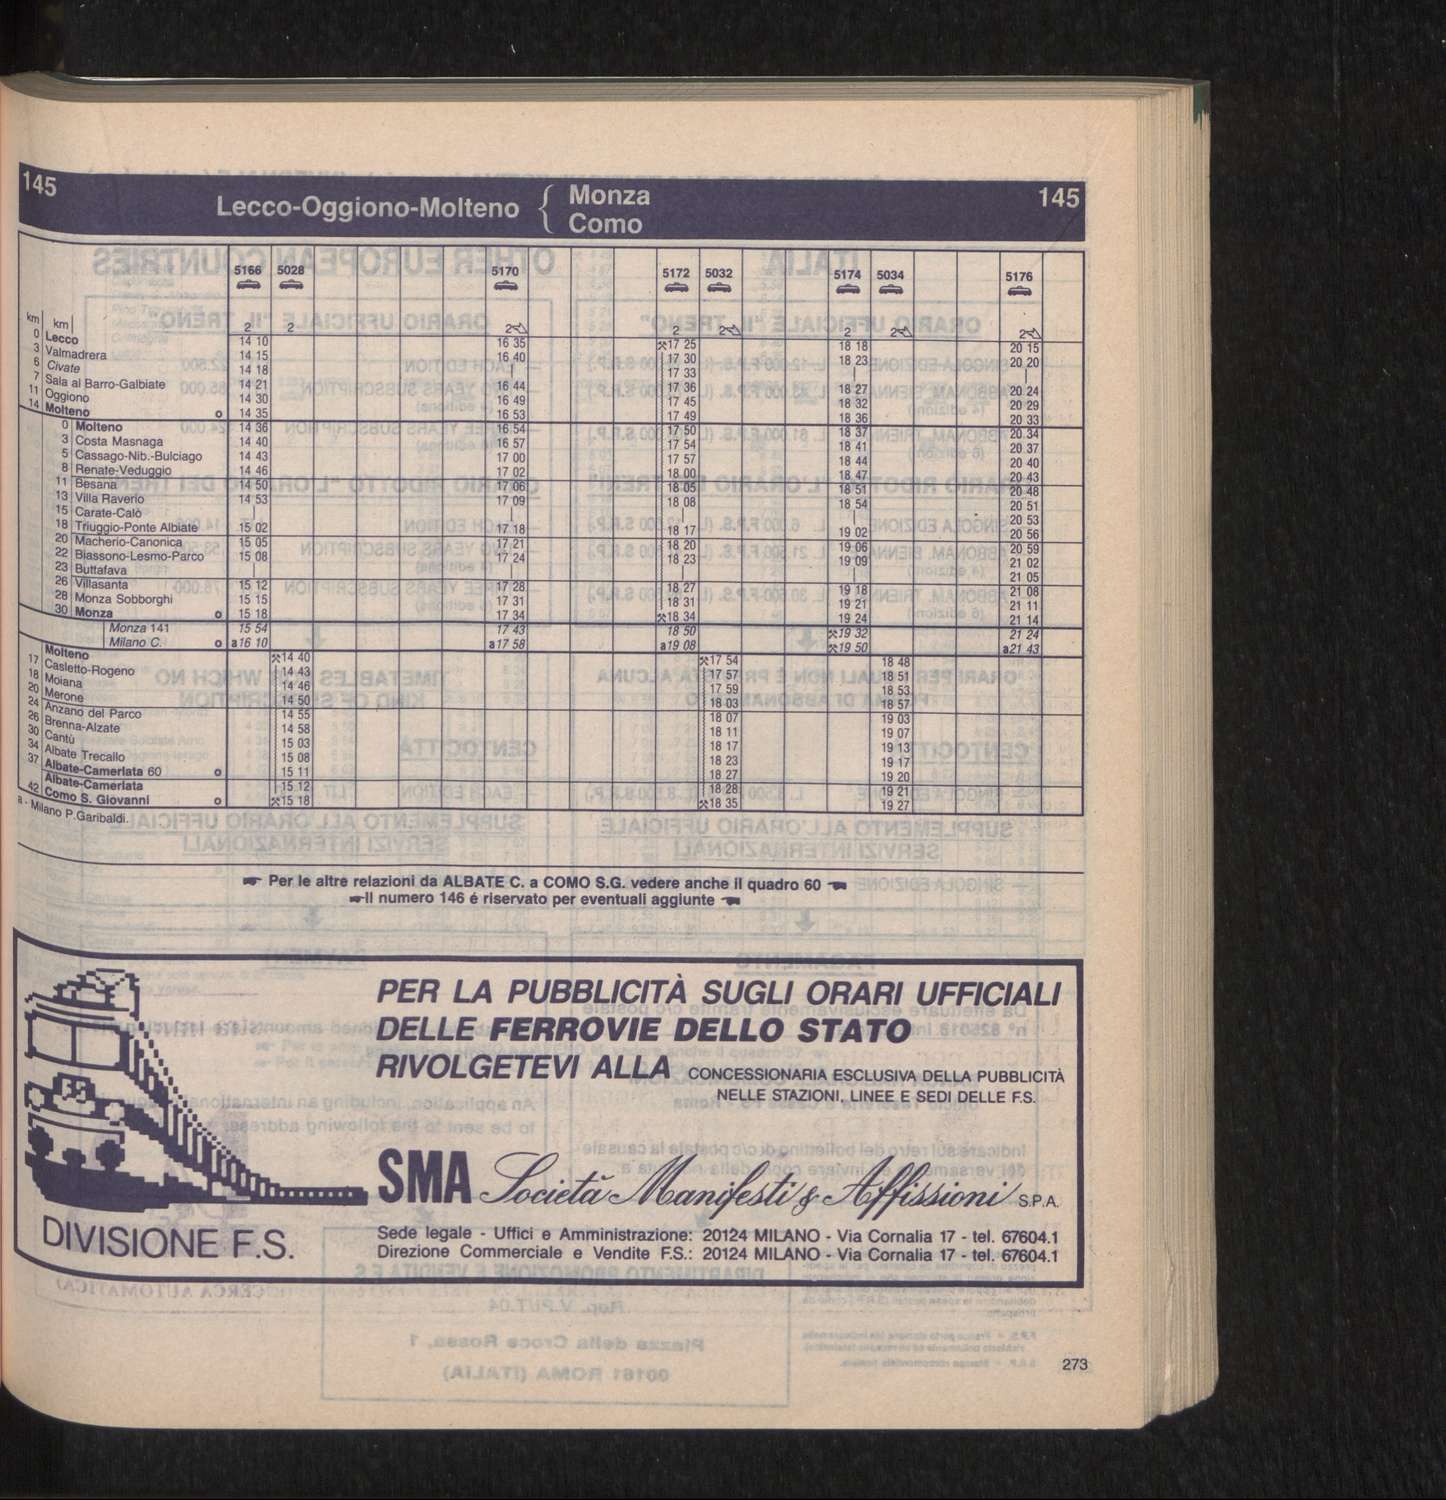 145 Lecco-Oggiono-Molteno { Monza Como 145
5166 5028 5170 5172 5032 5174 5034 5176
km km 2 2 2 2 2 2 2 2
0 Lecco 14 10 16 35 ⚒17 25 18 18 20 15
3 Valmadrera 14 15 16 40 17 30 18 23 20 20
6 Civate 14 18 | 17 33 | |
7 Sala al Barro-Galbiate 14 21 16 44 17 36 18 27 20 24
11 Oggiono 14 30 16 49 17 45 18 32 20 29
14 Molteno o 14 35 16 53 17 49 18 36 20 33
0 Molteno 14 36 16 54 17 50 18 37 20 34
3 Costa Masnaga 14 40 16 57 17 54 18 41 20 37
5 Cassago-Nib.-Bulciago 14 43 17 00 17 57 18 44 20 40
8 Renate-Veduggio 14 46 17 02 18 00 18 47 20 43
11 Besana 14 50 17 06 18 05 18 51 20 48
13 Villa Raverio 14 53 17 09 18 08 18 54 20 51
15 Carate-Calò | | | | 20 53
18 Triuggio-Ponte Albiate 15 02 17 18 18 17 19 02 20 56
20 Macherio-Canonica 15 05 17 21 18 20 19 06 20 59
22 Biassono-Lesmo-Parco 15 08 17 24 18 23 19 09 21 02
23 Buttafava | | | | 21 05
26 Villasanta 15 12 17 28 18 27 19 18 21 08
28 Monza Sobborghi 15 15 17 31 18 31 19 21 21 11
30 Monza o 15 18 17 34 ⚒18 34 19 24 21 14
Monza 141 15 54 17 43 18 50 ⚒19 32 21 24
Milano C. o a16 10 a17 58 a19 08 ⚒19 50 a21 43
Molteno ⚒14 40 ⚒17 54 18 48
17 Casletto-Rogeno 14 43 17 57 18 51
18 Moiana 14 46 17 59 18 53
20 Merone 14 50 18 03 18 57
24 Anzano del Parco 14 55 18 07 19 03
26 Brenna-Alzate 14 58 18 11 19 07
30 Cantù 15 03 18 17 19 13
34 Albate Trecallo 15 08 18 23 19 17
37 Albate-Camerlata 60 o 15 11 18 27 19 20
Albate-Camerlata 15 12 18 28 19 21
42 Como S. Giovanni o ⚒15 18 ⚒18 35 19 27
a - Milano P.Garibaldi.
Per le altre relazioni da ALBATE C. a COMO S.G. vedere anche il quadro 60
Il numero 146 é riservato per eventuali aggiunte
PER LA PUBBLICITÀ SUGLI ORARI UFFICIALI
DELLE FERROVIE DELLO STATO
RIVOLGETEVI ALLA CONCESSIONARIA ESCLUSIVA DELLA PUBBLICITÀ
NELLE STAZIONI, LINEE E SEDI DELLE F.S.
SMA Società Manifesti & Affissioni S.P.A.
DIVISIONE F.S.
Sede legale - Uffici e Amministrazione: 20124 MILANO - Via Cornalia 17 - tel. 67604.1
Direzione Commerciale e Vendite F.S.: 20124 MILANO - Via Cornalia 17 - tel. 67604.1
273